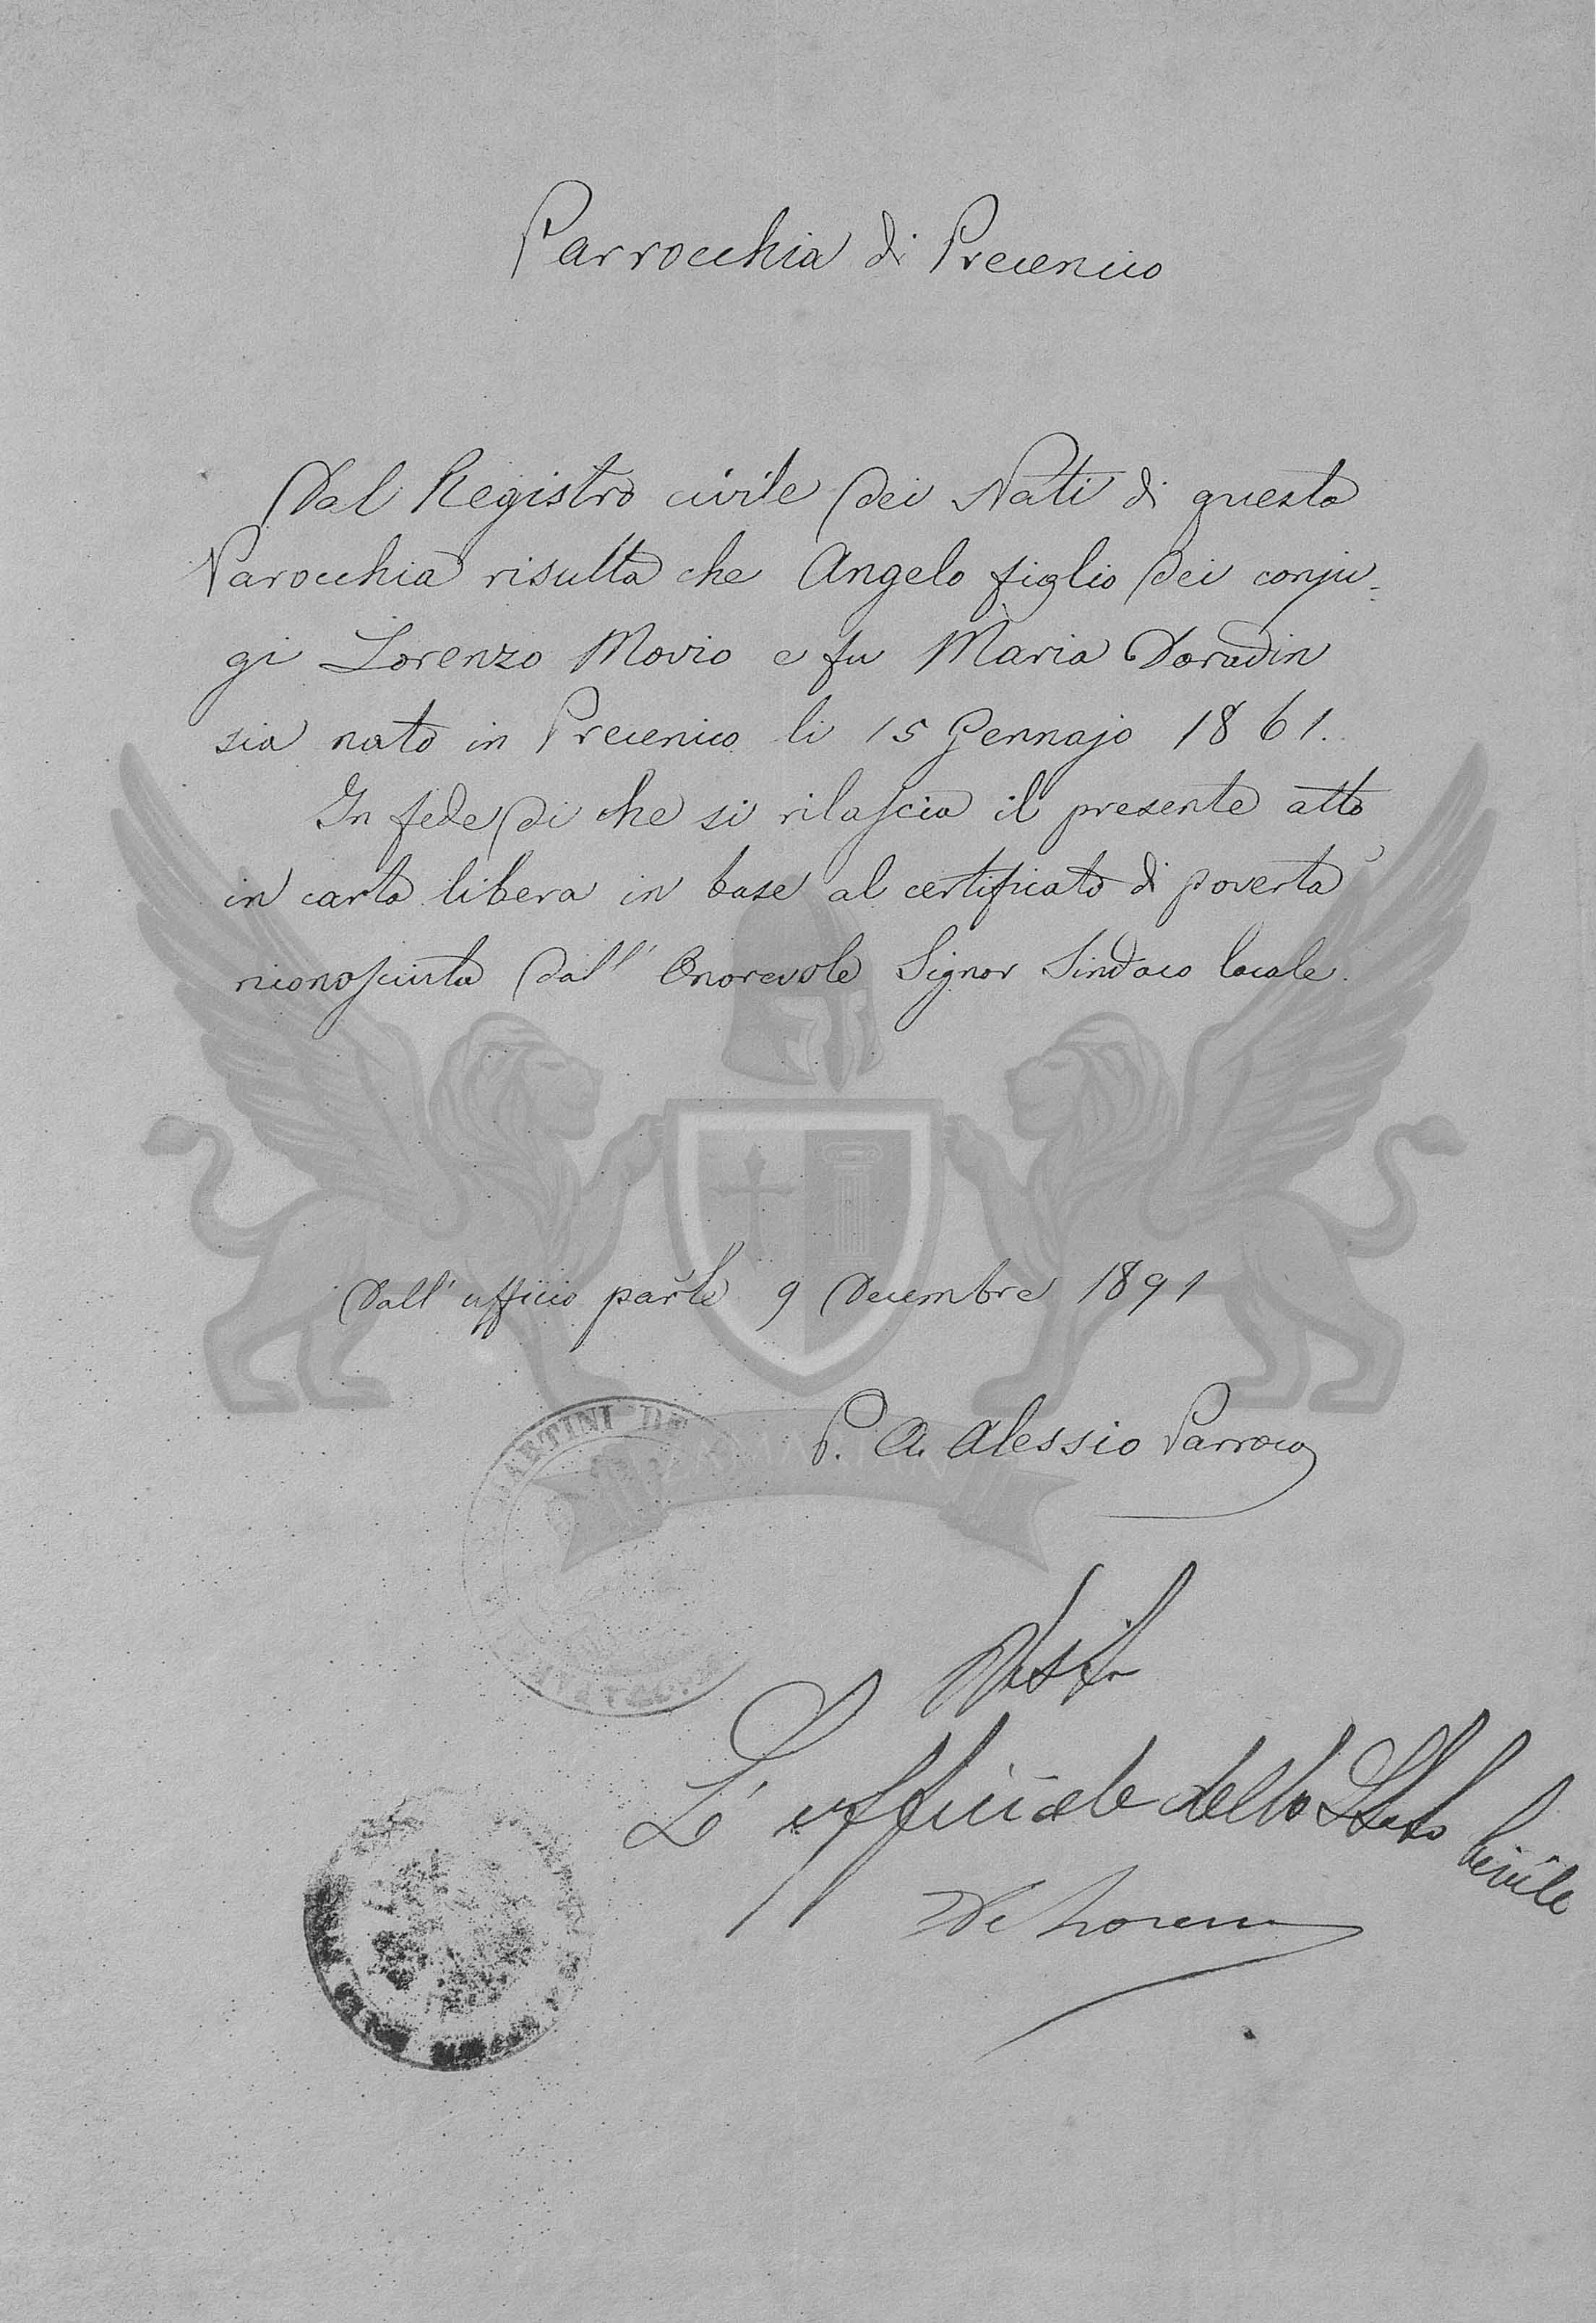 Parrocchia di Precenico
Dal Registro civile dei Nati di questa
Parocchia risulta che Angelo figlio dei conju-
gi Lorenzo Movio e fu Maria Doradin
sia nato in Precenico li 15 Gennajo 1861.
In fede di che si rilascia il presente atto
in carta libera in base al certificato di povertà
riconosciuta dall' Onorevole Signor Sindaco locale.
Dall' ufficio parle 9 Decembre 1891
P. A. Alessio Parroco
MARTINI DE
Visto
L' ufficiale dello Stato Civile